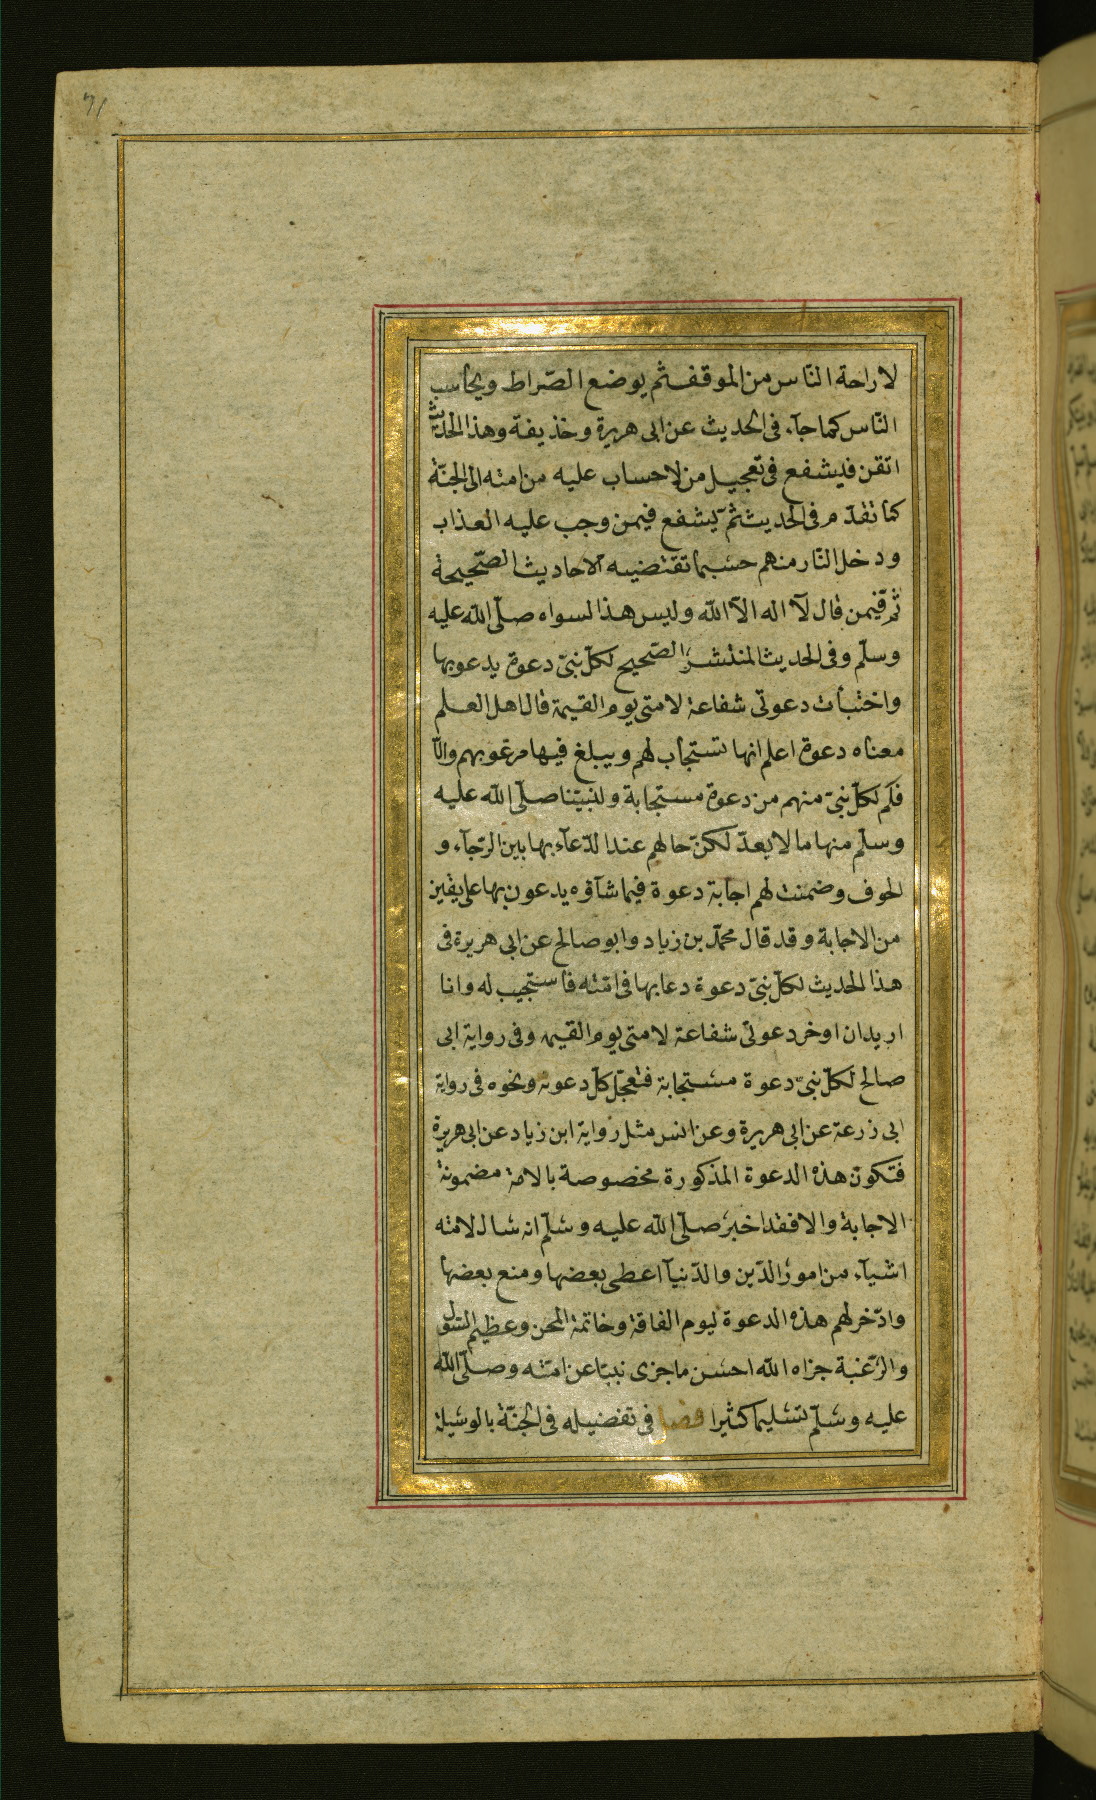 ٦١
لاراحة النّاس من الموقف ثم يوضع الصّراط ويحاسب
النّاس كما جآء فى الحديث عن ابى هريرة وحذيفة وهذا الحديث
اتقن فيشفع فى تعجيل من لا حساب عليه من امته الى الجنّة
كما تقدّم فى الحديث ثم يشفع فيمن وجب عليه العذاب
ودخل النّار منهم حسبما تقتضيه الاحاديث الصّحيحة
ثم فيمن قال لآ اله الآ الله وليس هذا لسواه صلّى الله عليه
وسلّم وفى الحديث المنتشر الصّحيح لكلّ نبىّ دعوة يدعو بها
واختبأت دعوتى شفاعة لامتى يوم القيمة قال اهل العلم
معناه دعوة اعلم انها تستجاب لهم ويبلغ فيها مرغوبهم والّا
فكم لكلّ نبىّ منهم من دعوة مستجابة ولنبيّنا صلّى الله عليه
وسلّم منها ما لا يعدّ لكنّ حالهم عند الدّعآء بها بين الرّجآء و
الخوف وضمنت لهم اجابة دعوة فيما شآؤه يدعون بها على يقين
من الاجابة وقد قال محمّد بن زياد وابو صالح عن ابى هريرة فى
هذا الحديث لكلّ نبىّ دعوة دعا بها فى امّته فاستجيب له وانا
اريد ان اوخر دعوتى شفاعة لامتى يوم القيمه وفى رواية ابى
صالح لكلّ نبىّ دعوة مستجابة فتعجّل كلّ دعوته ونحوه فى رواية
ابى زرعة عن ابى هريرة وعن انس مثل رواية ابن زياد عن ابى هريرة
فتكون هذه الدعوة المذكورة مخصوصة بالامة مضمونة
الاجابة والا فقد اخبر صلّى الله عليه وسلّم انه سال لامته
اشيآء من امور الدّين والدّنيآ اعطى بعضها ومنع بعضها
وادّخر لهم هذه الدعوة ليوم الفاقة وخاتمة المحن وعظيم السّول
والرّغبة جزاه الله احسن ما جزى نبيا عن امّته وصلّى الله
عليه وسلّم تسليما كثيرا فصل فى تفضيله فى الجنّة بالوسيلة